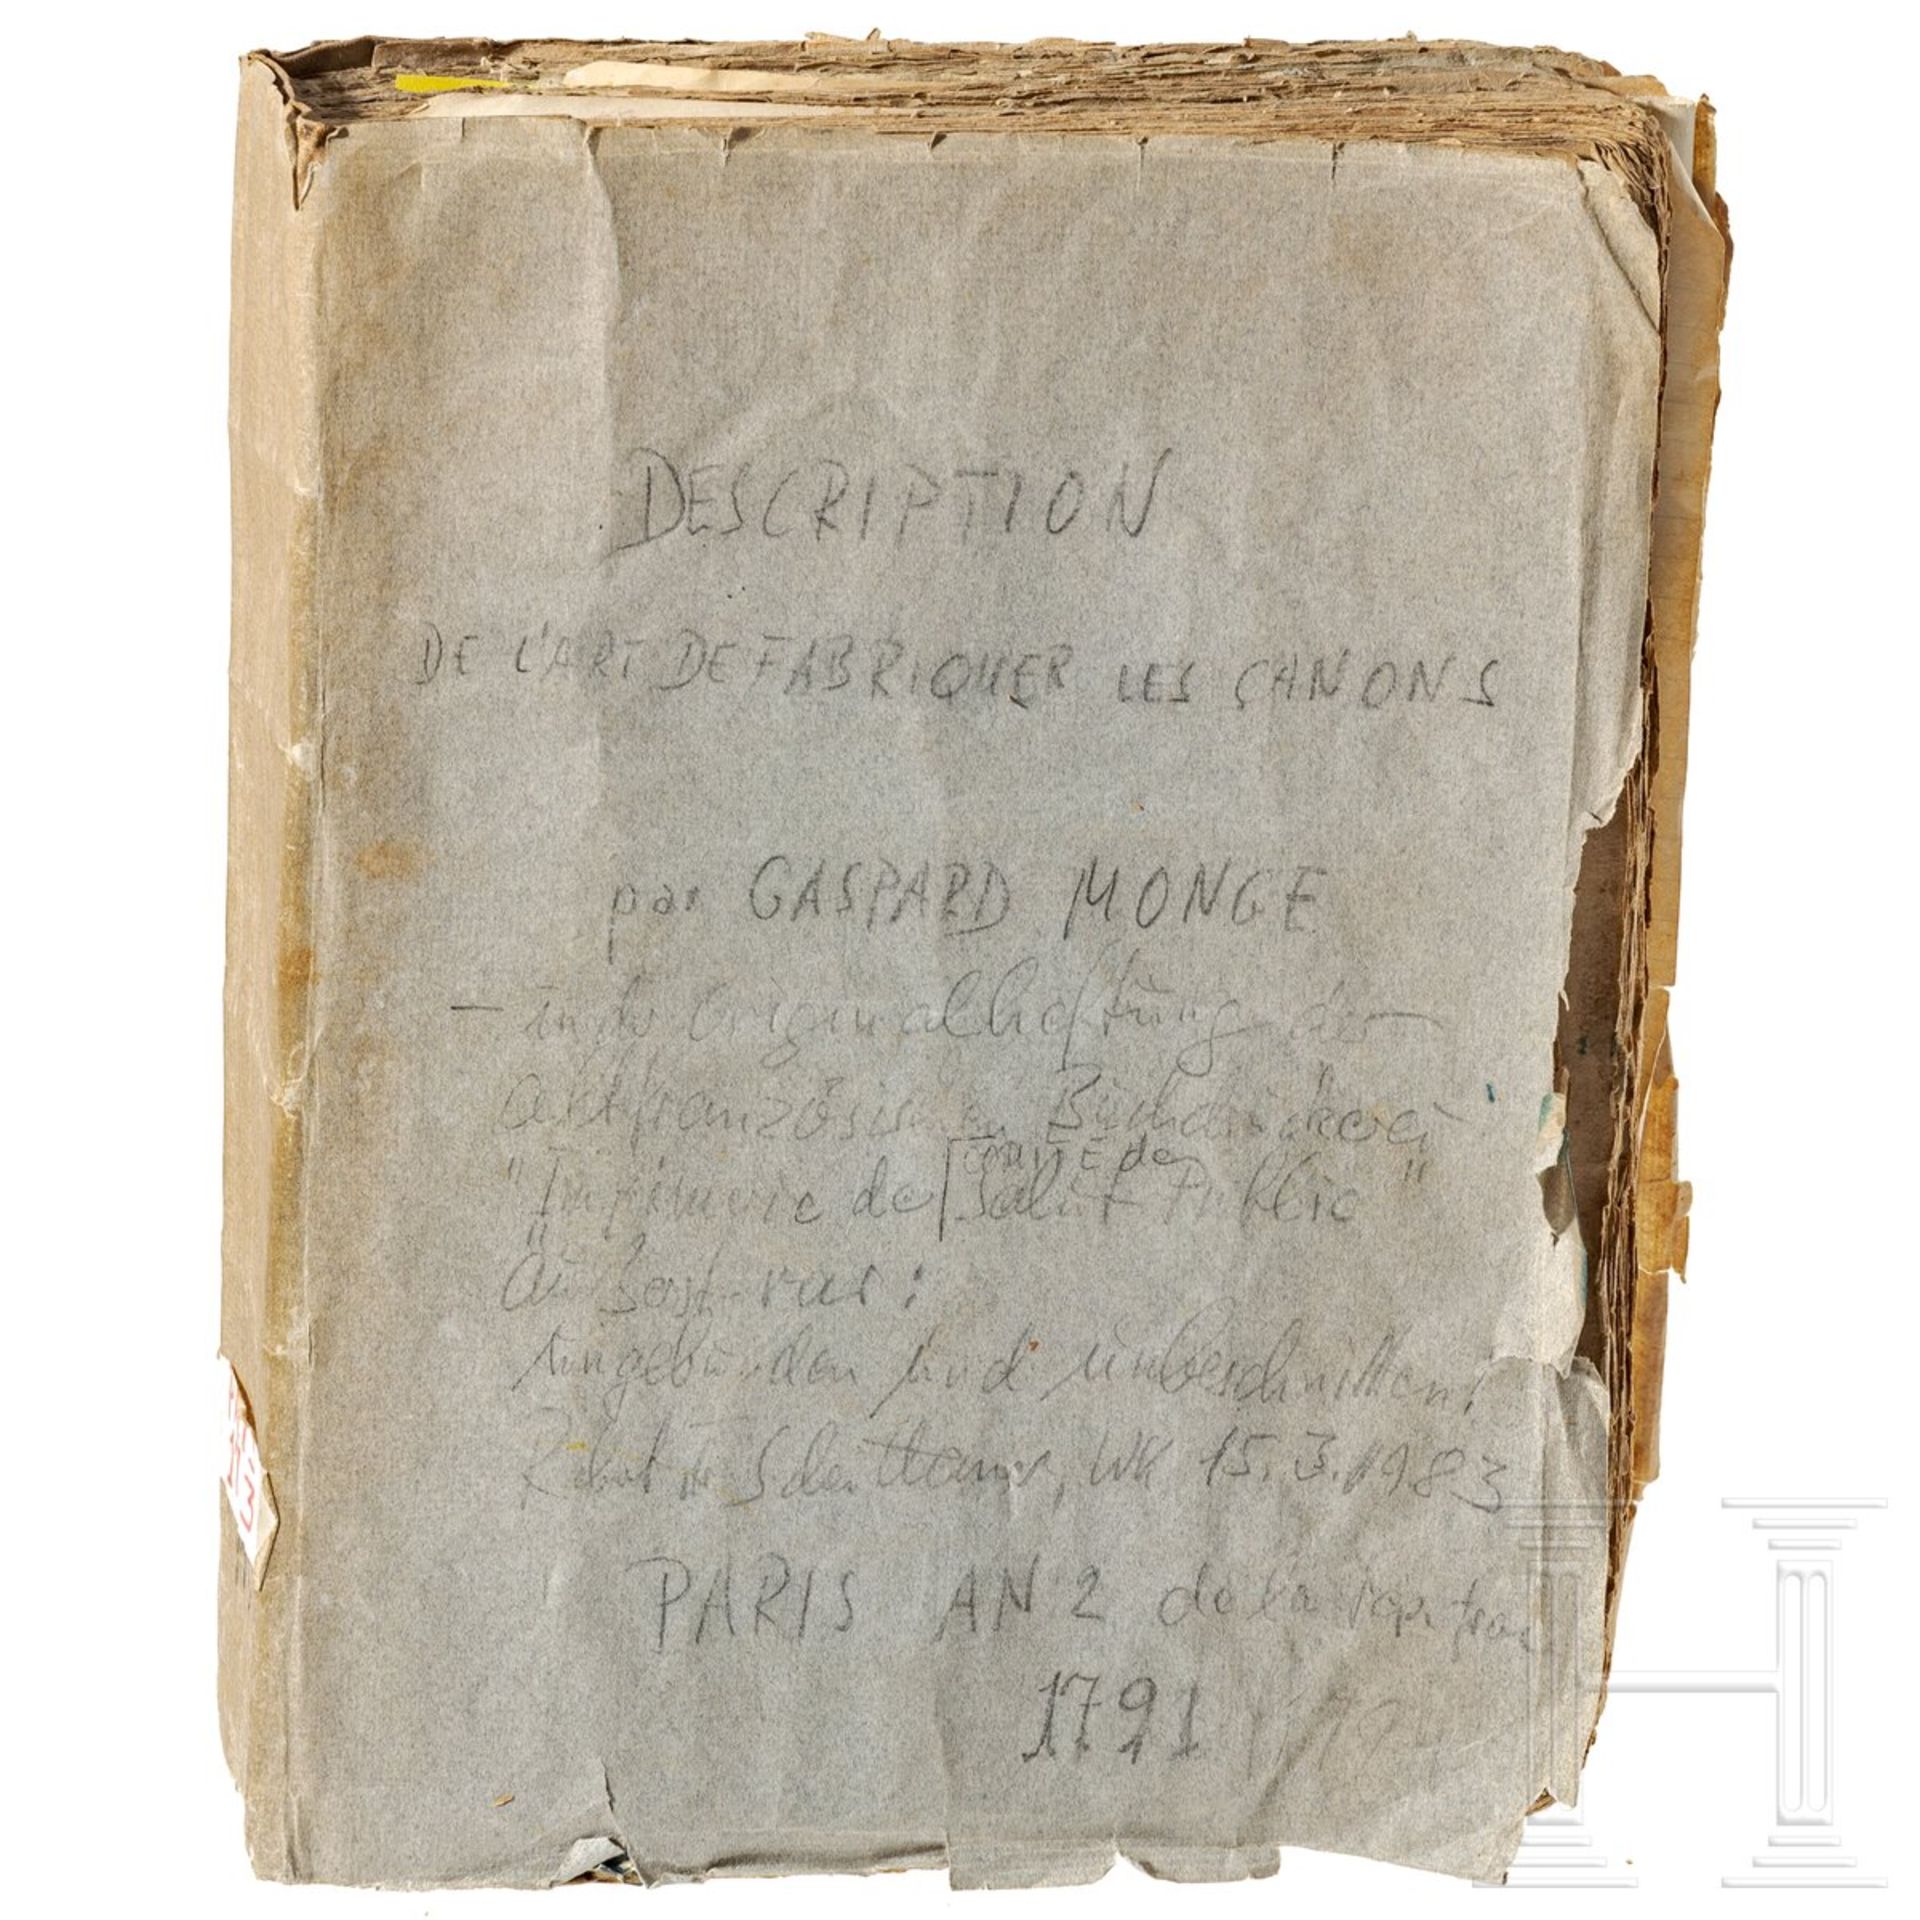 DESCRIPTION
DE L'ART DE FABRIQUER LES CANONS
par GASPARD MONGE
— in der Originalheftung der
altfranzösischen Buchdruckerei
Comité de
"Imprimerie de Salut Public"
äußerst rar:
ungebunden und unbeschnitten!
15.3.1983
PARIS AN 2 de la
1791
H